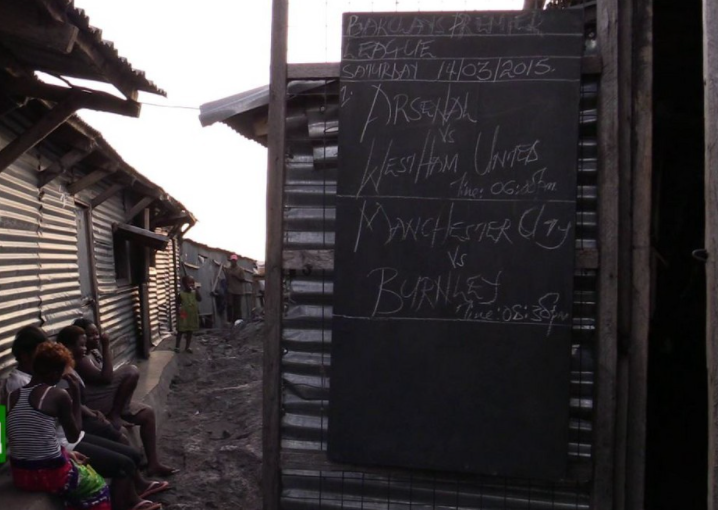 BARCLAYS PREMIER
LEAGUE
SATURDAY 14/03/2015.
ARSENAL
VS
WEST HAM UNITED
Time: 06:00Pm
MANCHESTER CITY
VS
BURNLEY
Time: 08:30Pm